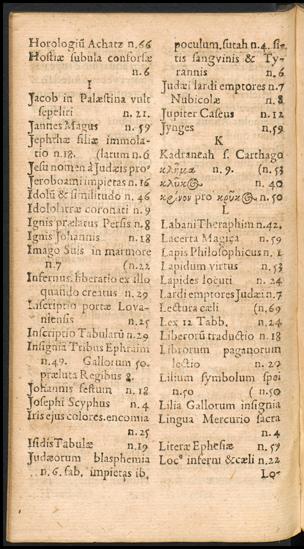 Horologiũ Achatz n.66
Hostiæ subula confossæ
n.6
I
Jacob in Palæstina vult
sepeliri n. 21.
Jannes Magus n. 59
Jephthæ filiæ immola-
tio n.18. (latum n.6
Jesu nomen à Judæis pro-
Jeroboami impietas n.16
Idolũ & similitudo n. 46
Idololatræ coronati n. 9
Ignis prælatus Persis n.8
Ignis Johannis n.18
Imago Suis in marmore
n.7 (n.22
Infernus, liberatio ex illo
quando creatus n. 29
Inscriptio portæ Lova-
niensis n.25
Inscriptio Tabularũ n.29
Insignia Tribus Ephraim
n.49. Gallorum 50.
præluta Regibus 8.
Johannis festum n. 18
Josephi Scyphus n. 4
Iris ejus colores. encomia
n. 25
Isidis Tabulæ n.19
Judæorum blasphemia
n. 6. fab. impietas ib.
poculum. sutah n.4. si-
tis sangvinis & Ty-
rannis n.6
Judæi lardi emptores n.7
Nubicolæ n.8
Jupiter Casius n.12
Jynges n.59
K
Kadraneah s. Carthago
κλῆμα n. 9. (n.53
n. 40
κρίνον pro n.50
L
Labani Theraphim n.42.
Lacerta Magica n.59
Lapis Philosophicus n.1
Lapidum virtus n.53
Lapides locuti n.24
Lardi emptores Judæi n.7
Lectura cæli (n.69
Lex 12 Tabb. n.24
Liberorũ traductio n.18
Librorum paganorum
lectio n.20
Lilium symbolum spei
n.50 (n.50
Lilia Gallorum insignia
Lingua Mercurio sacra
n.4
Literæ Ephesiæ n.59
Locꝰ inferni & cæli n.22
Lo-